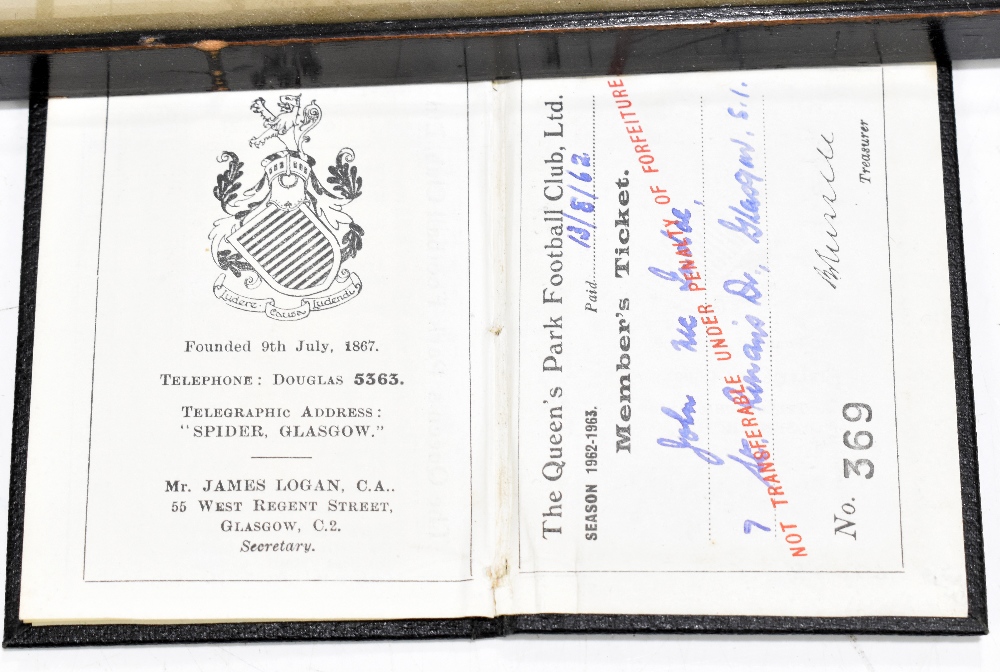 Ludere Causa Ludendi
Founded 9th July, 1867.
TELEPHONE: DOUGLAS 5363.
TELEGRAPHIC ADDRESS:
"SPIDER, GLASGOW."
Mr. JAMES LOGAN, C.A..
55 WEST REGENT STREET,
GLASGOW, C.2.
Secretary.
The Queen's Park Football Club, Ltd.
SEASON 1962-1963. Paid 13/8/62
Member's Ticket.
John Mc
7 Dr., Glasgow. S.1.
NOT TRANSFERABLE UNDER PENALTY OF FORFEITURE
No. 369
Treasurer